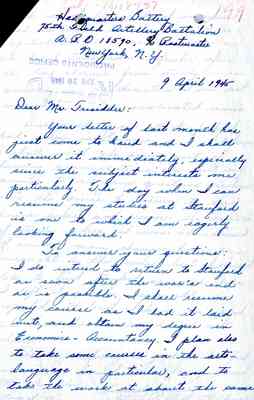 199
Headquarters Battery
75th Field Artillery Battalion
A.P.O. 18590, % Postmaster
New York, N.Y.
9 April 1945
Dear Mr. Tresidder:
Your letter of last month has
just come to hand and I shall
answer it immediately, especially
since the subject interests me
particularly. The day when I can
resume my studies at Stanford
is one to which I am eagerly
looking forward.
To answer your questions:
I do intend to return to Stanford
as soon after the war's end
as is possible. I shall resume
my course as I had it laid
out, and attain my degree in
Economics - Accountancy. I plan also
to take some courses in the arts -
language in particular, and to
take the work at about the same